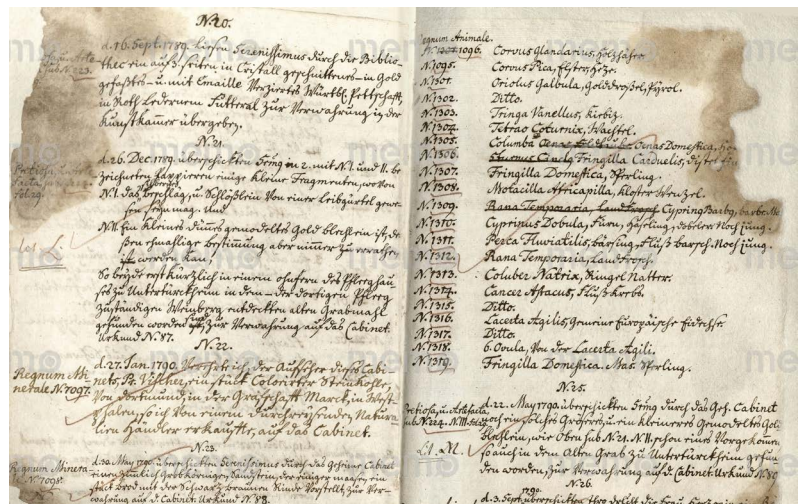 N. 20.
d. 16. Sept. 1789. liesen Serenissimus durch die Biblio-
thec ein auf 3. seiten in Cristall geschnittenes - in Gold
gefaßtes - u. mit Emaille Verziertes Würtbl. Pettschafft,
in Roth Ledernem Futteral zur Verwahrung in der
Kunstkammer übergeben.
N. 21.
d. 26. Dec. 1789. überschickten in 2. mit N. I. und II. be-
zeichneten Papieren einige kleine Fragmenten, wovon
N. I. das Beschläg, u. Schlößlein von einer Leibgürtel gewe-
sen seyn mag. Und
N. II. Ein kleines dünes gemodeltes Gold blechlein ist, de-
ßen ehmahlige bestimmung aber nimmer zu errathen
worden kan,
So beyde erst kürzlich in einem ohnfern des Pfleghau-
ses zu Untertürckheim in dem - der dortigen Pfleg
Zuständigen Weinberg entdeckten alten Grabmahl
gefunden worden, zur Verwahrung auf das Cabinet.
Urkund N. 87.
N. 22.
Regnum Mi-
nerale N. 7097.
d. 27. Jan. 1790. der Aufseher dieses Cabi-
nets, Vischer, ein stück Colorirter Steinkohle,
Von Dortmund, in der Grafschafft Marck, in West-
phalen, so ich Von einem durchreisenden Natura-
lien Händler erkauffte, auf das Cabinet.
N. 23.
Regnum Minera
N. 7098.
d. 30. May 1790. überschickten Serenissimus durch das Geheime Cabinet
einen ziemlich Grob Körnigen Sandstein, der
brod mit der Schwarz braunen Rinde Vorstellt, zur Ver-
wahrung auf d. Cabinet. Urkund N. 88.
Regnum Animale.
1096. Corvus Glandarius, Holzhäher.
N. 1095. Corvus Pica, Elster, Heze.
N. 1301. Oriolus Galbula, Golddroßel, Pyrol.
N. 1302. Ditto.
N. 1303. Tringa Vanellus, Kirbiz.
N. 1304. Tetrao Coturnix, Wachtel.
N. 1305. Columba Oenas Domestica,
N. 1306. Fringilla Carduelis,
N. 1307. Fringilla Domestica, Sperling.
N. 1308. Motacilla Atricapilla, Kloster Wenzel.
N. 1309. Rana Temporaria, Landfrosch
N. 1310. Cyprinus Dobula, Furn, Häßling, Noch jung.
N. 1311. Perca Fluviatilis, bärsling, Fluß barsch. Noch jung.
N. 1312. Rana Temporaria, Landfrosch.
N. 1313. Coluber Natrix, Ringel Natter.
N. 1314. Cancer Astacus, Fluß Krebs.
N. 1315. Ditto.
N. 1316. Lacerta Agilis, Gemeine Europäische Eidechse.
N. 1317. Ditto.
N. 1318. 6. Ovula, Von der Lacerta Agili.
N. 1319. Fringilla Domestica. Mas. Sperling.
N. 25.
d. 22. May 1790. überschickten durch das Geh. Cabinet
ein Größeres, u. ein kleineres Gemodeltes Gold
blechlein, wie Oben sub N. 21. N. II. schon eines Vorgekommen
so auch in dem Alten Grab zu Untertürckheim gefun-
den worden, zur Verwahrung auf d. Cabinet. Urkund N. 80
N. 26.